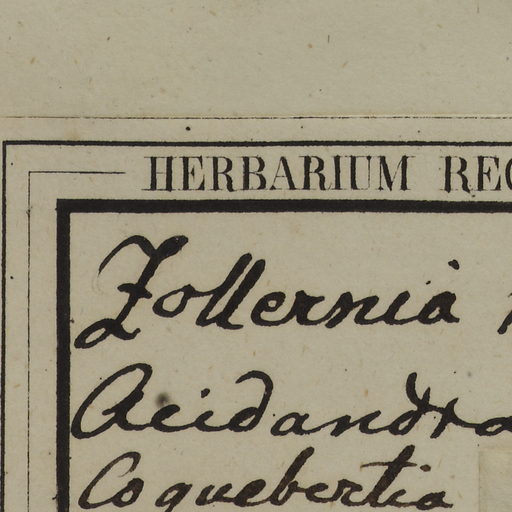 HERBARIUM REG
Zollernia
Acidandra
Coquebertia